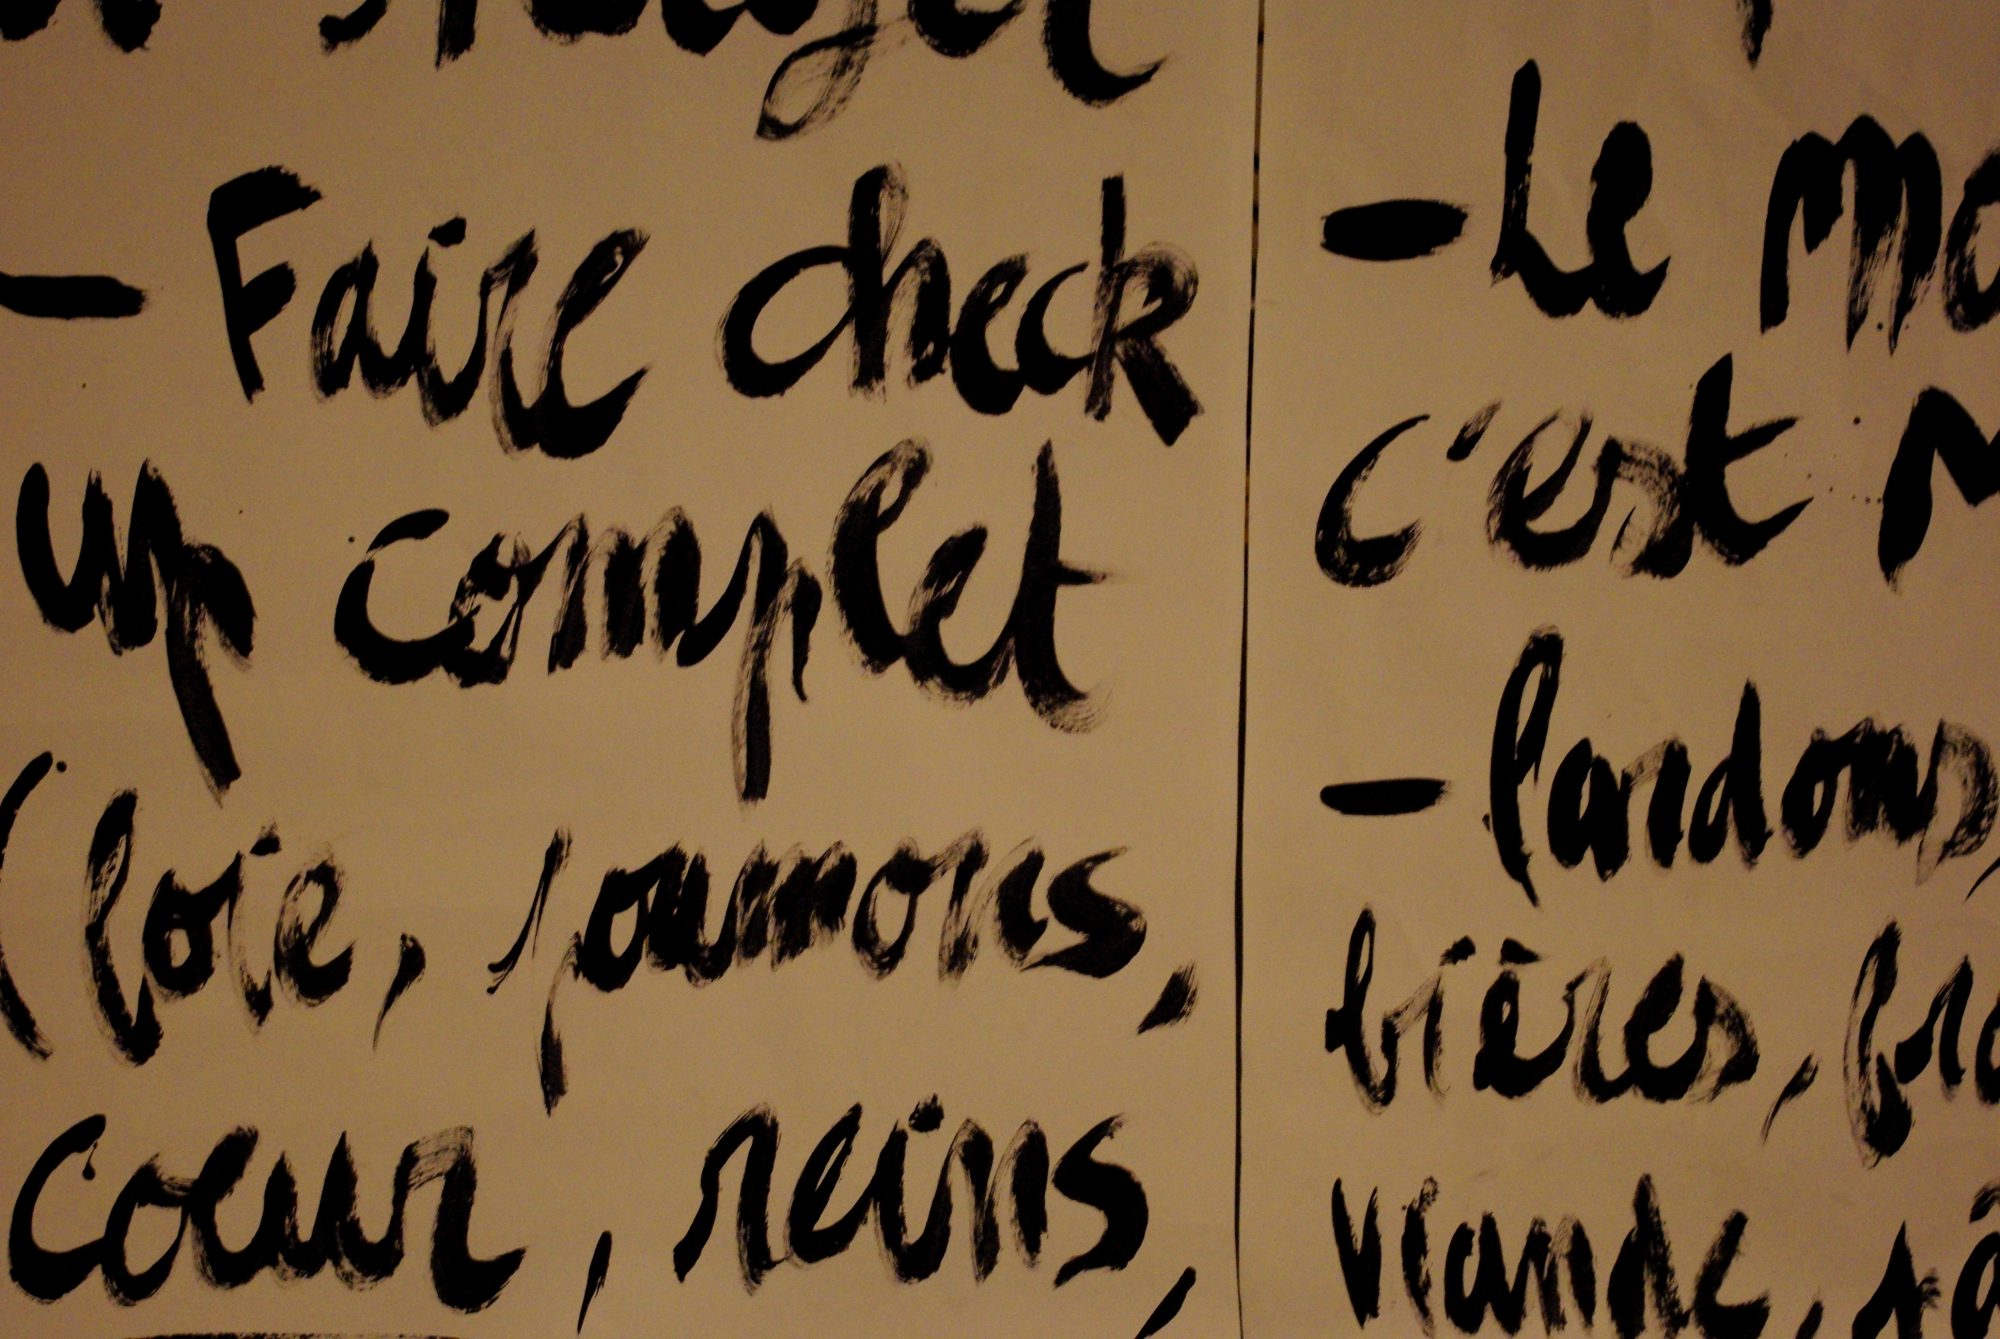 - Faire check
up complet
(foie, poumons,
cœur, reins,
- Le
c'est
- lardons,
bières,
viande,